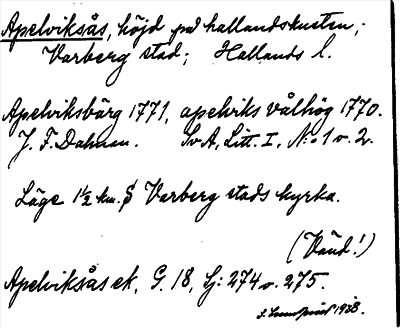 Apelviksås, höjd på hallandskusten;
Varberg stad; Hallands l.
Apelviksbärg 1771, apelviks vålhög 1770.
J. F. Dahman. Sv A, Litt. I, No 1 o. 2.
Läge 1½ km. S Varberg stads kyrka.
(Vänd!)
Apelviksås ek, G. 18, Lj: 274 o. 275.
1928.